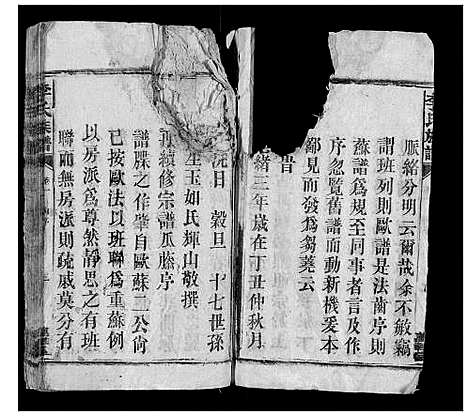 脈絡分明云爾哉余不敏竊
謂班列則歐譜是法齒序則
蘇譜爲規至同事者言及作
序忽覽舊譜而動新機爰本
鄙見而發爲芻蕘云
旹
緒三年歲在丁丑仲秋月
浣日 穀旦 十七世孫
生玉如氏輝山敬撰
續修宗譜瓜滕序
譜牒之作肇自歐蘇二公尙
已按歐法以班聯爲重蘇例
以房派爲尊然靜思之有班
聯而無房派則疏戚莫分有
李氏族譜